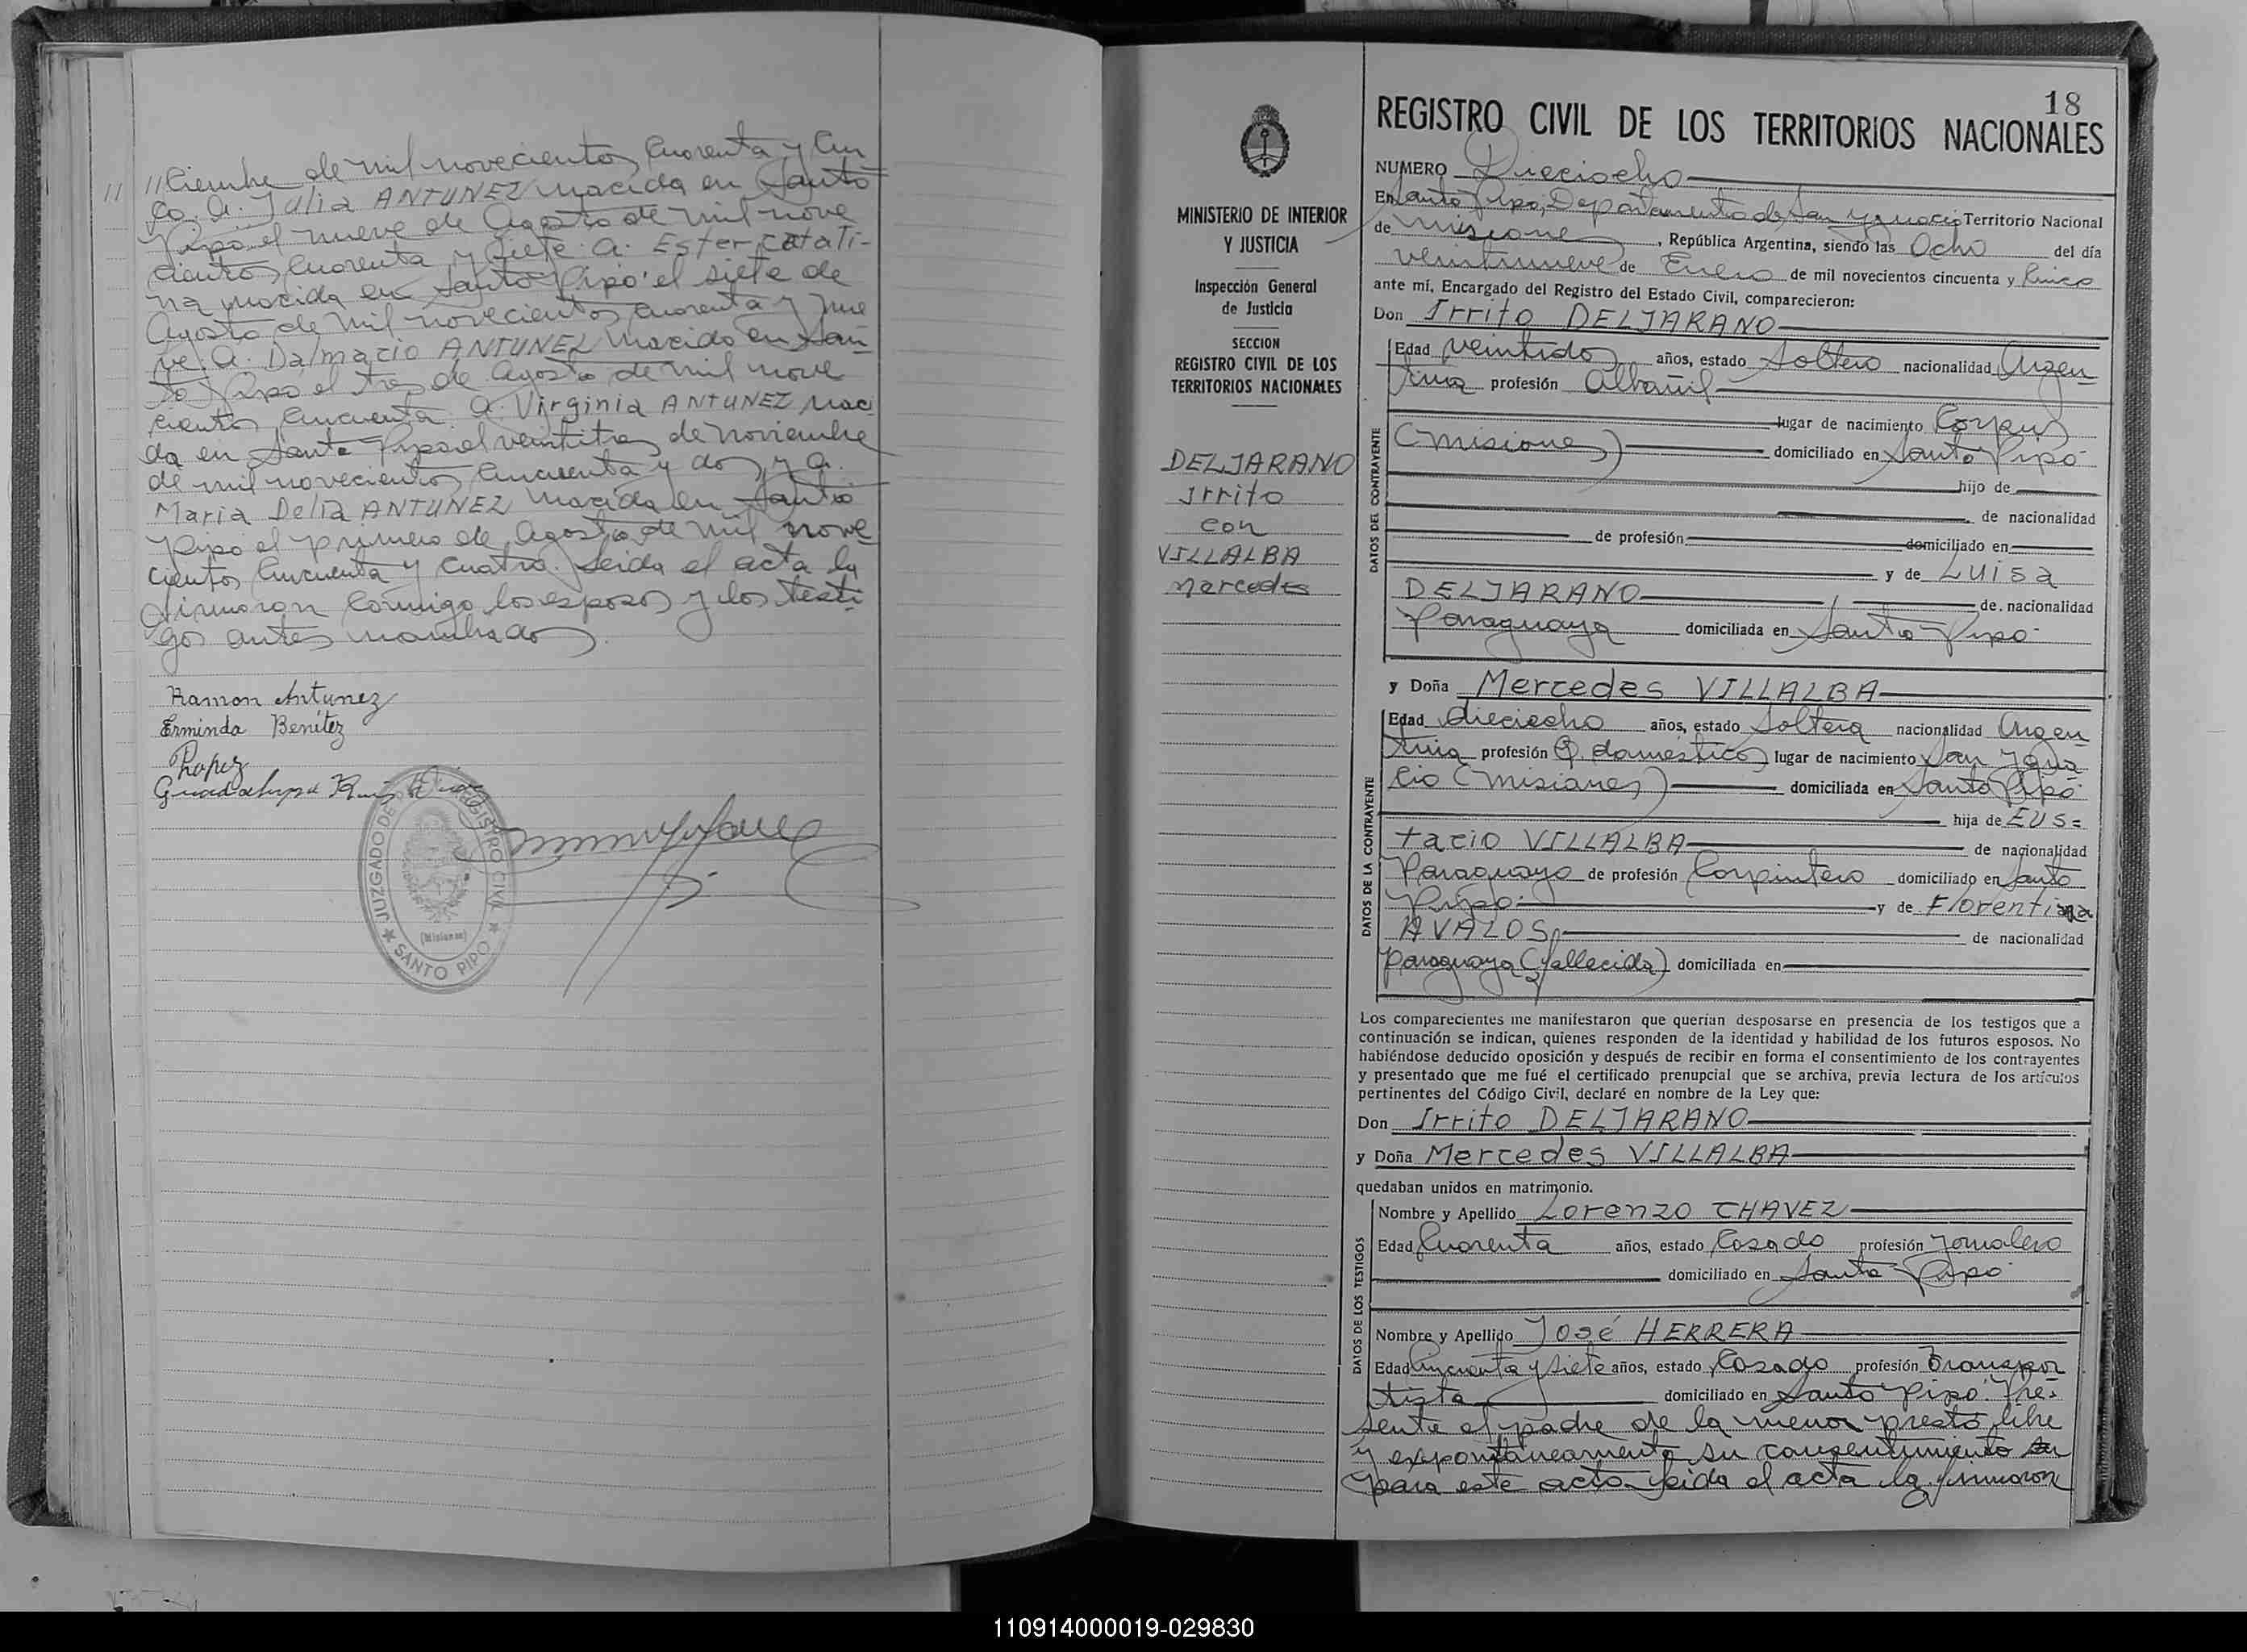 11 //ciembre de mil novecientos cuarenta y cin
co. a. Julia ANTUNEZ nacida en Santo
Pipó el nueve de Agosto de mil nove
cientos cuarenta y siete. a. Ester catali-
na nacida en Santo Pipó el siete de
Agosto de mil novecientos cuarenta y nue
ve. a. Dalmacio ANTUNEZ nacido en San-
to Pipo el tres de Agosto de mil nove
cientos cincuenta. a. Virginia ANTUNEZ naci
da en Santo Pipo el veintitres de noviembre
de mil novecientos cincuenta y dos, y a.
Maria Delia ANTUNEZ nacida en Santo
Pipó el primero de Agosto de mil nove
cientos cincuenta y cuatro. Leida el acta la
firmaron conmigo los esposos y los testi
gos antes nombrados.
Ramon Antunez
Erminda Benítez
Lopez
Guadalupe Ruiz Diaz
JUZGADO DE REGISTRO CIVIL
(Misiones)
SANTO PIPO
18
REGISTRO CIVIL DE LOS TERRITORIOS NACIONALES
MINISTERIO DE INTERIOR
Y JUSTICIA
Inspección General
de Justicia
SECCION
REGISTRO CIVIL DE LOS
TERRITORIOS NACIONALES
DELJARANO
Irrito
con
VILLALBA
Mercedes
NUMERO Dieciocho
En Santo Pipo, Departamento de San Ygnacio Territorio Nacional
de Misiones, República Argentina, siendo las Ocho del día
veintinueve de Enero de mil novecientos cincuenta y Cinco
ante mí, Encargado del Registro del Estado Civil, comparecieron:
Don Irrito DELJARANO
DATOS DEL CONTRAYENTE
Edad veintidos años, estado Soltero nacionalidad Argen
tina profesión Albañil
lugar de nacimiento Corpus
(Misiones) domiciliado en Santo Pipó
hijo de
de nacionalidad
de profesión domiciliado en
y de LUISA
DELJARANO de nacionalidad
Paraguaya domiciliada en Santo Pipó
y Doña Mercedes VILLALBA
DATOS DE LA CONTRAYENTE
Edad dieciocho años, estado Soltera nacionalidad Argen
tina profesión Q. domésticos lugar de nacimiento San Ygna
cio (Misiones) domiciliada en Santo Pipó
hija de EUS=
tacio VILLALBA de nacionalidad
Paraguayo de profesión Carpintero domiciliado en Santo
Pipo. y de Florentina
AVALOS, de nacionalidad
Paraguaya (fallecida) domiciliada en
Los comparecientes me manifestaron que querían desposarse en presencia de los testigos que a
continuación se indican, quienes responden de la identidad y habilidad de los futuros esposos. No
habiéndose deducido oposición y después de recibir en forma el consentimiento de los contrayentes
y presentado que me fué el certificado prenupcial que se archiva, previa lectura de los artículos
pertinentes del Código Civil, declaré en nombre de la Ley que:
Don Irrito DELJARANO
y Doña Mercedes VILLALBA
quedaban unidos en matrimonio.
DATOS DE LOS TESTIGOS
Nombre y Apellido Lorenzo CHAVEZ
Edad Cuarenta años, estado Casado profesión Jornalero
domiciliado en Santo Pipó
Nombre y Apellido José HERRERA
Edad Cincuenta y siete años, estado Casado profesión Transpor
tista domiciliado en Santo Pipó. Pre=
sente el padre de la menor prestó libre
y expontáneamente su consentimiento
para este acto. Leida el acta la firmaron
110914000019-029830